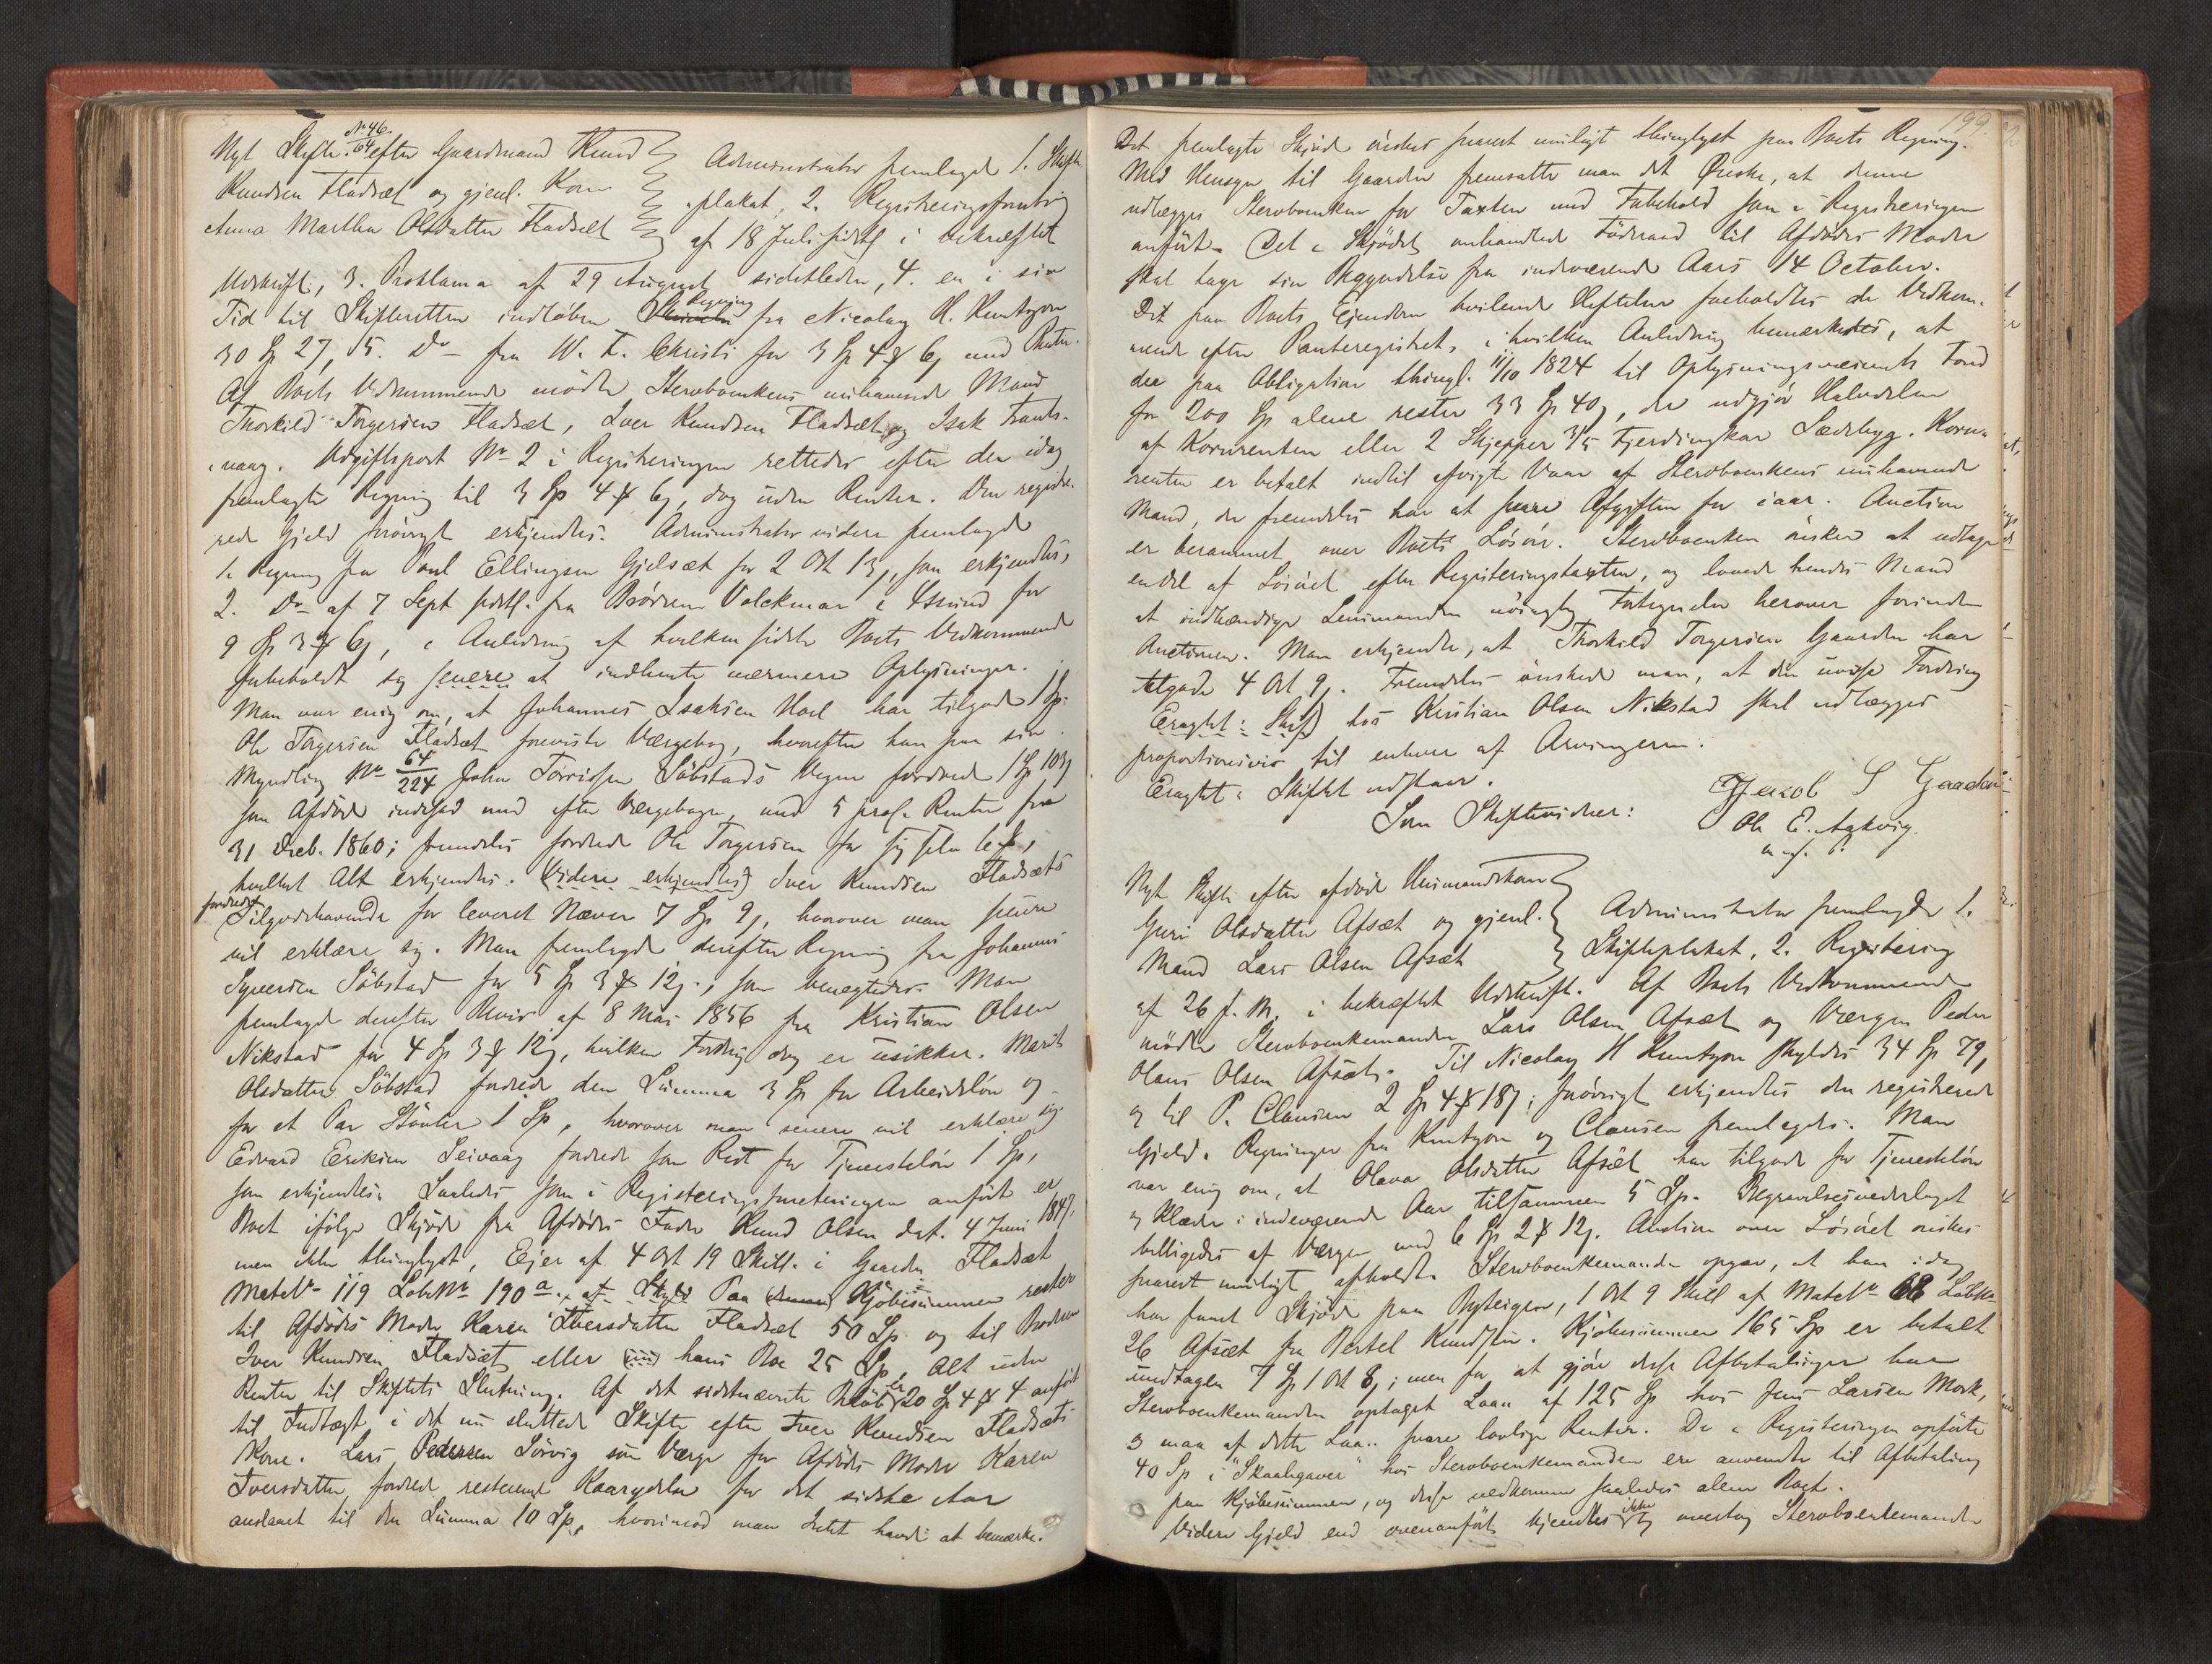 Nyt Skifte No 46/64 efter Gaardmand Knud
Knudsen Fladsæt og gjenl. Kone
Anna Martha Olsdatter Fladsæt
Administrator fremlagde 1. Skifte-
plakat, 2. Registreringsforretning
af 18 Juli sidstl. i bekræftet
Udskrift, 3. Proklama af 29 August sidstleden, 4. en i sin
Tid til Skifteretten indløben Regning fra Nicolay H. Knutzon
30 Sp 27 ß, 5. Do fra W. F. Christi for 3 Sp 4 Ort 6 ß med Renter.
Af Boets Vedkommende mødte Sterboenkens nuhavende Mand
Thorkild Torgersen Fladsæt, Iver Knudsen Fladsæt og Isak Trants-
vaag. Udgiftspost No 2 i Registreringen rettedes efter den idag
fremlagte Regning til 3 Sp 4 Ort 6 ß, dog uden Renter. Den registre-
rede Gjeld forøvrigt erkjendtes. Administrator videre fremlagde
1. Regning fra Poul Ellingsen Gjelsæt for 2 Ort 13 ß, som erkjendtes,
2. Do af 7 Sept sidstl. fra Brødrene Volckmar i Chssund for
9 Sp 3 Ort 6 ß, i Anledning af hvilken sidste Boets Vedkommende
forbeholdt sig senere at indhente nærmere Oplysninger.
Man var enig om, at Johannes Isaksen Hoel har tilgode 1 Sp.
Ole Torgersen Fladsæt foreviste Værgebog, hvorefter han paa sin
Myndling No 64/224 John Torrissen Söbstads Vegne fordrede 1 Sp 103 ß
som Afdøde indesad med efter Værgebogen, med 5 proc. Renter fra
31 Decb. 1860; fremdeles fordrede Ole Torgersen for sig selv 6 Ort,
hvilket Alt erkjendtes. (videre erkjendtes) Iver Knudsen Fladsæts
fordrede Tilgodehavende for leveret Næver 7 Sp 9 ß, hvorover man senere
vil erklære sig. Man fremlagde derefter Regning fra Johannes
Syversen Söbstad for 5 Sp 3 Ort 12 ß, som benegtedes. Man
fremlagde derefter Bevis af 8 Mai 1856 fra Kristian Olsen
Nikstad for 4 Sp 3 Ort 12 ß, hvilken Fordring dog er usikker. Marit
Olsdatter Söbstad fordrede den Summa 3 Sp for Arbeidsløn og
for et Par Støvler 1 Sp, hvorover man senere vil erklære sig.
Edvard Eriksen Leivaag fordrede som Rest for Tjenesteløn 1 Sp,
som erkjendtes. Saaledes som i Registreringsforretningen anført er
Boet ifølge Skjøde fra Afdødes Fader Knud Olsen dat. 4 Juni 1847,
men ikke thinglyst, Eier af 4 Ort 19 Skill. i Gaarden Fladsæt
Matr No 119 Løbe No 190 a. af Skyld Paa Kjøbesummen rester
til Afdødes Moder Karen Iversdatter Fladsæt 50 Sp og til Broderen
Iver Knudsen Fladsæt eller hans Boe 25 Sp, Alt uden
Renter til Skiftets Slutning. Af det sidstnævnte Beløb er 20 Sp 4 Ort 4 anført
til Indtægt i det nu sluttede Skifte efter Iver Knudsen Fladsæts
Kone. Lars Pedersen Sørvig som Værge for Afdødes Moder Karen
Iversdatter fordrede resterende Kaarydelse for det sidste Aar
anslaaet til den Summa 10 Sp, hvorimod man Intet havde at bemærke.
199.
Det fremlagte Skjøde ønskes snarest muligt thinglyst paa Boets Regning.
Med Hensyn til Gaarden fremsatte man det Ønske, at denne
udlægges Sterboenken for Taxten med Forbehold som i Registreringen
anført. Det i Skjødet omhandlede Föderaad til Afdødes Moder
skal tage sin Begyndelse fra indeværende Aars 14 October.
De paa Boets Eiendom hvilende Heftelser foreholdtes de Vedkom-
mende efter Panteregistret, i hvilken Anledning bemærkedes, at
der paa Obligation thingl. 11/10 1824 til Oplysningsvæsenets Fond
for 200 Sp alene rester 33 Sp 40 ß, der udgjør Halvdelen
af Kornrenten eller 2 Skjepper 3/5 Fjerdingkar Sædbyg. Korn-
renten er betalt indtil afvigte Vaar af Sterboenkens nuhavende
Mand, der fremdeles har at svare Afgiften for iaar. Auction
er berammet over Boets Løsøre. Sterboenken ønsker at udtage
endel af Løsøret efter Registreringstaxten, og lovede hendes Mand
at indhændige Lensmanden nöiagtig Fortegnelse herover forinden
Auctionen. Man erkjendte, at Thorkild Torgersen Gaarden har
tilgode 4 Ort 9 ß. Fremdeles ønskede man, at den uvisse Fordring
Eragtet: Skif) hos Kristian Olsen Nikstad skal udlægges
proportionsvis til enhver af Arvingerne.
Eragtet: Skiftet udstaar.
Som Skiftevidner:
Jacob S Gaarden
Ole E. Aakvig.
m. f. P.
Nyt Skifte efter afdøde Huusmandskone
Guri Olsdatter Afsæt og gjenl.
Mand Lars Olsen Afsæt
Administrator fremlagde 1.
Skifteplakat, 2. Registrering
af 26 f. M. i bekræftet Udskrift. Af Boets Vedkommende
mødte Sterboenkemanden Lars Olsen Afsæt og Værgen Peder
Olaus Olsen Afsæt. Til Nicolay H Knutzon skyldes 34 Sp 79 ß,
og til P. Clausen 2 Sp 4 Ort 18 ß; forøvrigt erkjendtes den registrerede
Gjeld. Regninger fra Knutzon og Clausen fremlagdes. Man
var enig om, at Olava Olsdatter Afsæt har tilgode for Tjenesteløn
og Klæder i indeværende Aar tilsammen 5 Sp. Begravelsesvederlaget
billigedes af Værgen med 6 Sp 2 Ort 12 ß. Auction over Løsøret ønskes
snarest muligt afholdt. Sterboenkemanden opgav, at han idag
har faaet Skjøde paa Bygseleien, 1 Ort 9 Skill af Matr No 68 Løbe
26 Afsæt fra Bertel Knudsen. Kjøbesummen 165 Sp er betalt
undtagen 7 Sp 1 Ort 8 ß; men for at gjøre disse Afbetalinger har
Sterboenkemanden optaget Laan af 125 Sp hos Jens Larsen Mork,
og maa af dette Laan svare lovlige Renter. De i Registreringen opførte
40 Sp i "Skaalegaver" hos Sterboenkemanden ere anvendte til Afbetaling
paa Kjøbesummen, og disse vedkommer saaledes alene Boet.
Videre Gjeld end ovenanført kjendtes ikke og overtog Sterboenkemanden